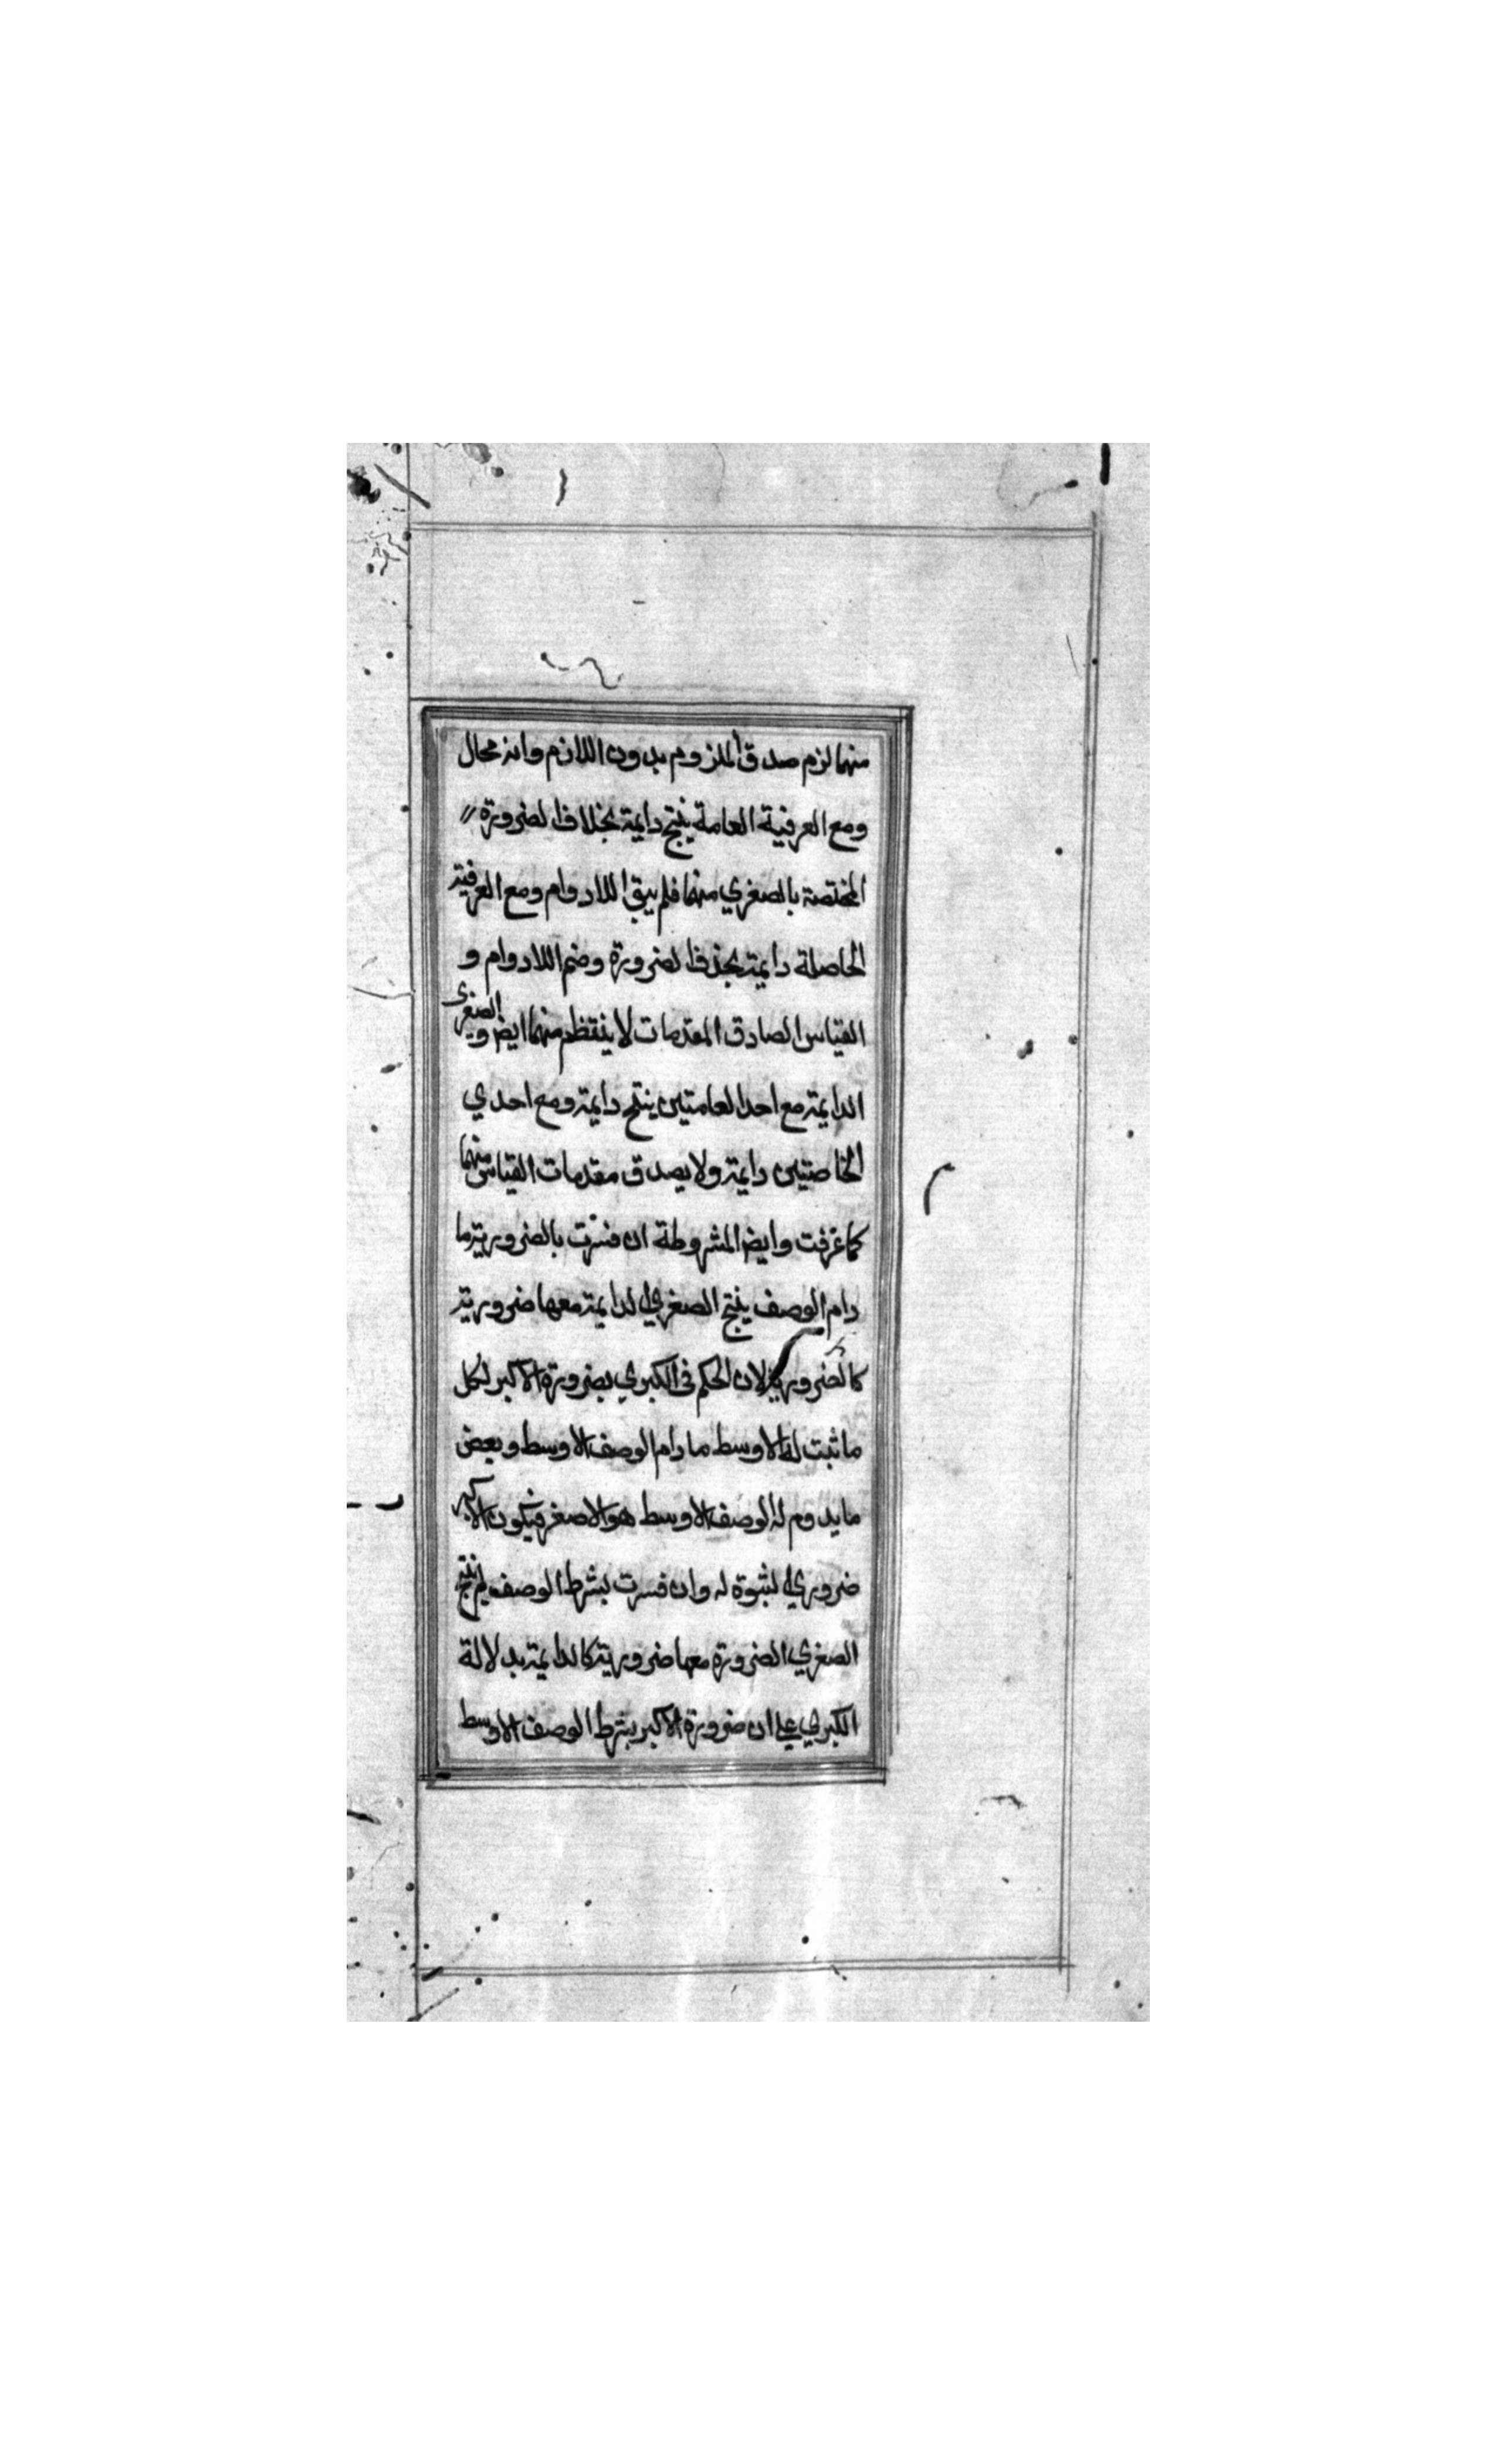 منهما لزم صدق الملزوم بدون اللازم وانه محال
ومع العرفية العامة ينتج دايمة بحذف الضرورة
المختصة بالصغري منهما فلم يبق اللادوام ومع العرفية
الخاصلة دايمة بحذف الضرورة وضم اللادوام و
القياس الصادق المقدمات لا ينتظم منهما ايض و الصغرى
الدايمة مع احد العامتين ينتج دايمة ومع احدي
الخاصتين دايمة ولا يصدق مقدمات القياس منهما
كما عرفت وايض المشروطة ان فسرت بالضرورية ما
دام الوصف ينتج الصغري الدايمة معها ضرورية
كالضرورية لان الحكم في الكبري بضرورة الاكبر لكل
ما ثبت له الاوسط ما دام الوصف الاوسط وبعض
ما يدوم له الوصف الاوسط هو الاصغر فيكون الاكبر
ضروري لثبوة له وان فسرت بشرط الوصف لم ينتج
الصغري الضرورة معها ضرورية كالدايمة بدلالة
الكبري علي ان ضرورة الاكبر بشرط الوصف الاوسط